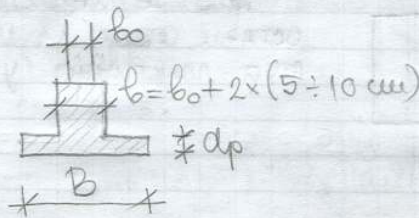 b₀
b = b₀ + 2 × (5 ÷ 10 cm)
dp
B